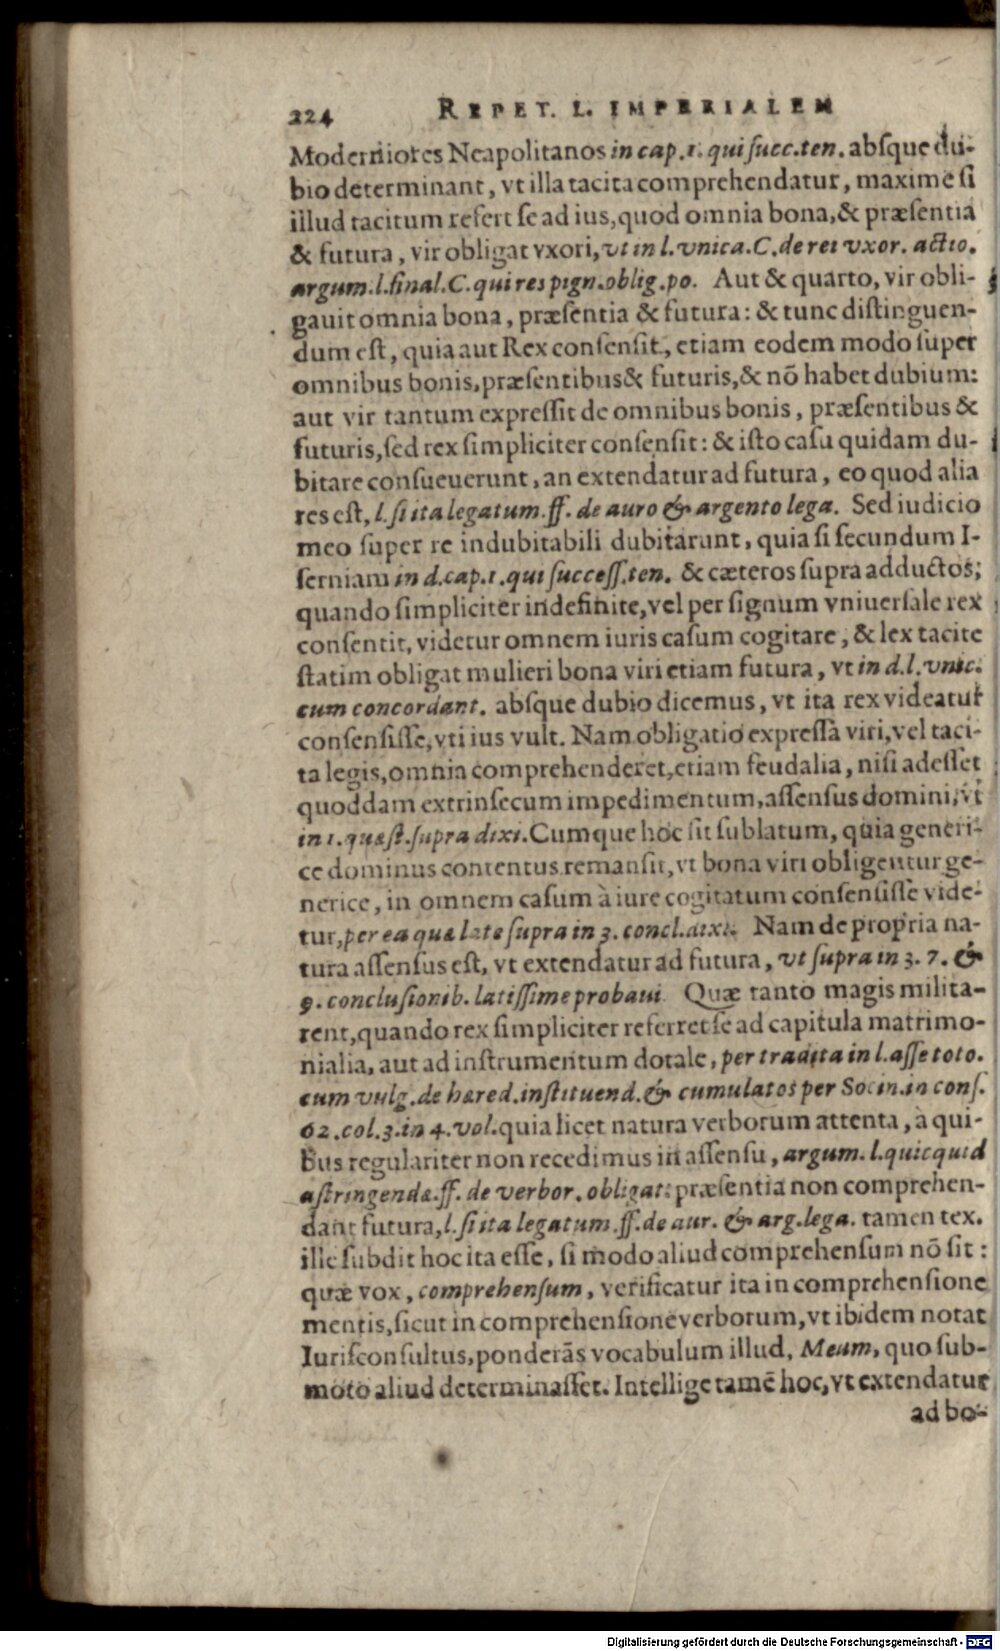 224 REPET. L. IMPERIALEM
Moderniores Neapolitanos in cap.1. qui succ.ten. absque du-
bio determinant, vt illa tacita comprehendatur, maxime si
illud tacitum refert se ad ius, quod omnia bona, & præsentia
& futura, vir obligat vxori, vt in l.vnica.C.de rei vxor. actio.
argum.l.final.C.qui res pign.oblig.po. Aut & quarto, vir obli-
gauit omnia bona, præsentia & futura: & tunc distinguen-
dum est, quia aut Rex consensit, etiam eodem modo super
omnibus bonis, præsentibus & futuris, & nõ habet dubium:
aut vir tantum expressit de omnibus bonis, præsentibus &
futuris, sed rex simpliciter consensit: & isto casu quidam du-
bitare consueuerunt, an extendatur ad futura, eo quod alia
res est, l. si ita legatum.ff. de auro & argento lega. Sed iudicio
meo super re indubitabili dubitarunt, quia si secundum I-
serniam in d.cap.1.qui success.ten. & cæteros supra adductos;
quando simpliciter indefinite, vel per signum vniuersale rex
consentit, videtur omnem iuris casum cogitare, & lex tacite
statim obligat mulieri bona viri etiam futura, vt in d.l.vnic.
cum concordant. absque dubio dicemus, vt ita rex videatur
consensisse, vti ius vult. Nam obligatio expressa viri, vel taci-
ta legis, omnia comprehenderet, etiam feudalia, nisi adesset
quoddam extrinsecum impedimentum, assensus domini, vt
in 1.quæst.supra dixi. Cumque hoc sit sublatum, quia generi-
ce dominus contentus remansit, vt bona viri obligentur ge-
nerice, in omnem casum à iure cogitatum consensisse vide-
tur, per ea quæ late supra in 3. concl.dixi. Nam de propria na-
tura assensus est, vt extendatur ad futura, vt supra in 3. 7. &
9. conclusionib. latissime probaui. Quæ tanto magis milita-
rent, quando rex simpliciter referret se ad capitula matrimo-
nialia, aut ad instrumentum dotale, per tradita in l.asse toto.
cum vulg. de hæred.instituend. & cumulatos per Socin.in cons.
62.col.3.in 4.vol. quia licet natura verborum attenta, à qui-
bus regulariter non recedimus in assensu, argum. l.quicquid
astringendæ.ff. de verbor. obligat: præsentia non comprehen-
dant futura, l.si ita legatum.ff.de aur. & arg.lega. tamen tex.
ille subdit hoc ita esse, si modo aliud comprehensum nõ sit:
quæ vox, comprehensum, verificatur ita in comprehensione
mentis, sicut in comprehensione verborum, vt ibidem notat
Iurisconsultus, ponderãs vocabulum illud, Meum, quo sub-
moto aliud determinasset. Intellige tamẽ hoc, vt extendatur
ad bo-
Digitalisierung gefördert durch die Deutsche Forschungsgemeinschaft - DFG